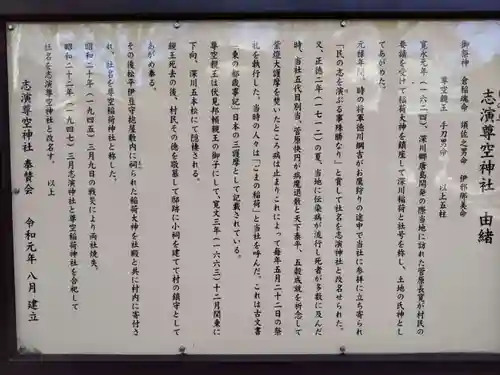 志演尊空神社 由緒
御祭神 倉稲魂命 須佐之男命 伊邪那美命
尊空親王 手力男命 以上五柱
寛永元年(一六二四)深川郷唐島開発の際当地に訪れた菅原長寛が村民の
要請を受けて稲荷大神を鎮座して深川稲荷と社号を称し、土地の氏神とし
てあがめた。
元禄年間、時の将軍徳川綱吉がお鷹狩りの途中で当社に参拝に立ち寄られ
「民の志を演ぶる事殊勝なり」と賞して社名を志演神社と改名せられた。
又、正徳二年(一七一二)の夏、当地に伝染病が流行し死者が多数に及んだ
時、当社五代目別当、菅原快円が病魔退散と天下泰平、五穀成就を祈念して
柴燈大護摩を焚いたところ病は止まりこれによって毎年五月二十二日の祭
礼を執行した。当時の人々は「ごまの稲荷」と当社を呼んだ。これは古文書
「東の都歳事記」日本の三護摩として記載されている。
尊空親王は伏見邦輔親王の御子にして、寛文三年(一六六三)十二月関東に
下向、深川五本松にて隠棲される。
親王死去の後、村民その徳を敬慕して邸跡に小祠を建てて村の鎮守として
あがめ奉る。
その後松平伊豆守捻屋敷内に祠られた稲荷大神を社殿と共に村内に寄付さ
れ、社名を尊空稲荷神社と称した。
昭和二十年(一九四五)三月九日の戦災により両社焼失。
昭和二十二年(一九四七)三月志演神社と尊空稲荷神社を合祀して
社名を志演尊空神社と改名す。 以上
志演尊空神社 奉賛会 令和元年 八月 建立